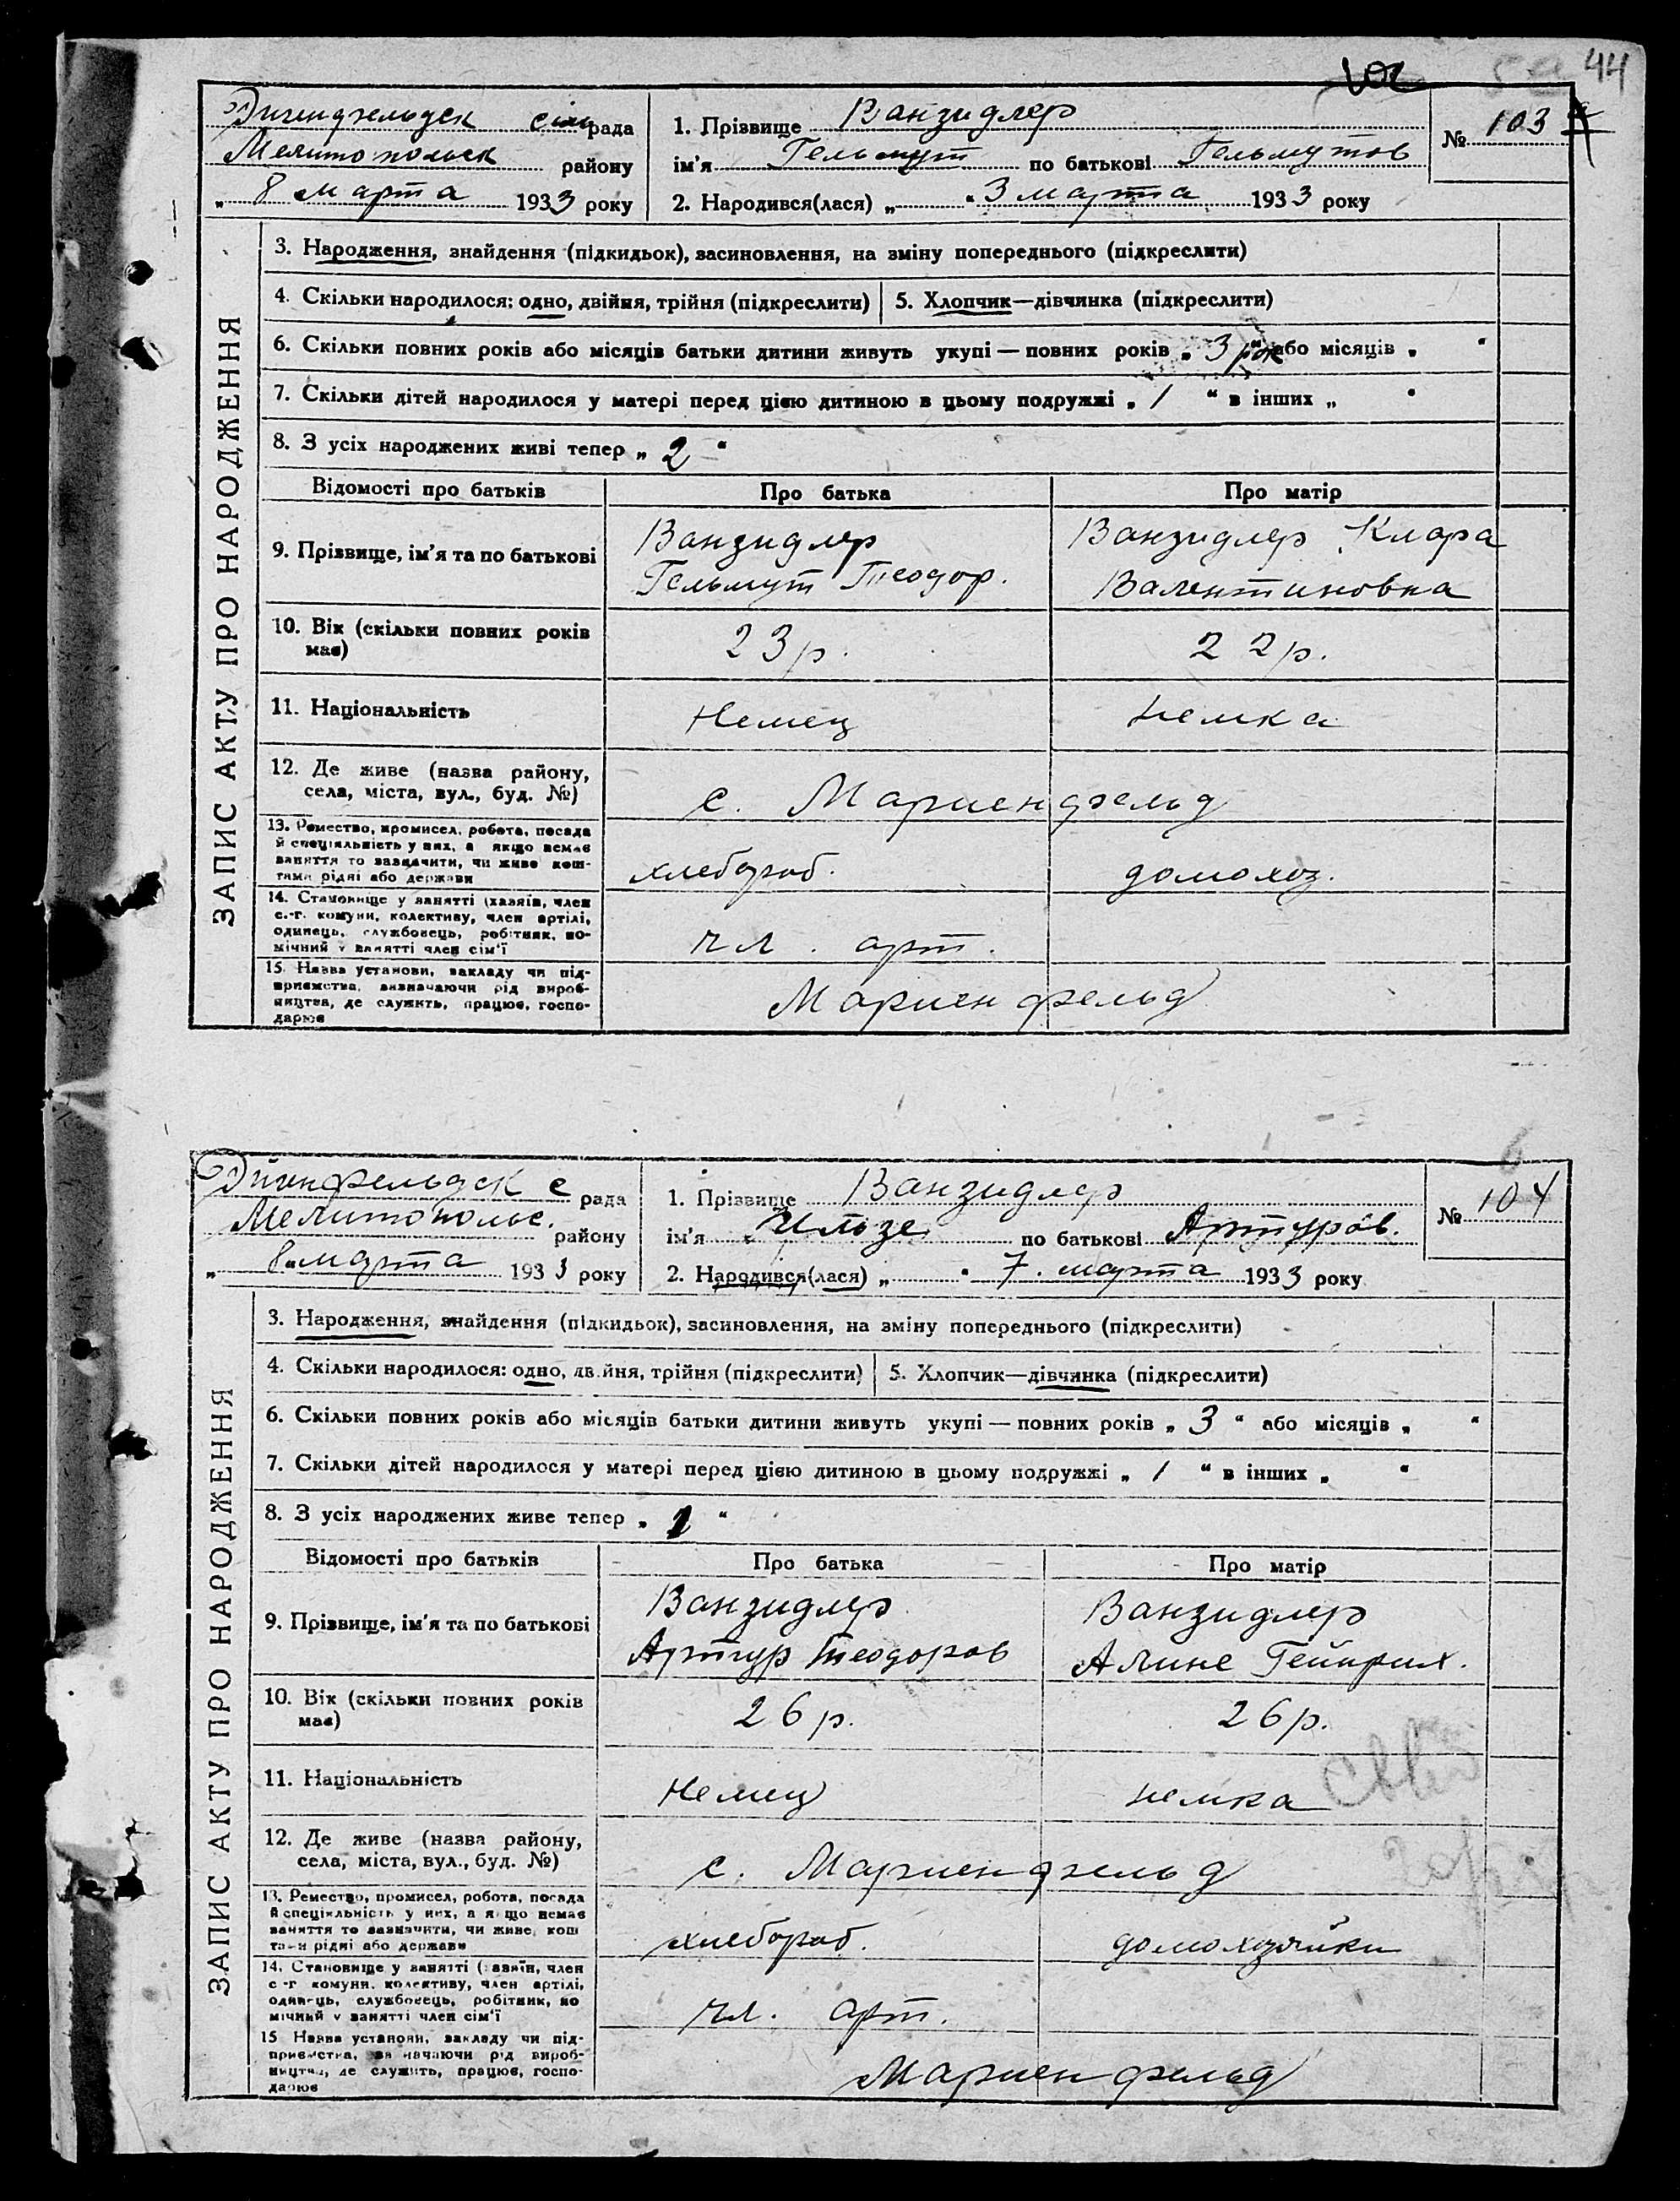 44
Дигенфельдск сіль рада
Мелитопольск району
„ 8 марта 1933 року
1. Прізвище Ванзидлер
ім'я Гельмут по батькові Гельмутов
2. Народився(лася) „ “ 3 марта 1933 року
№ 103
ЗАПИС АКТУ ПРО НАРОДЖЕННЯ
3. Народження, знайдення (підкидьок), засиновлення, на зміну попереднього (підкреслити)
4. Скільки народилося: одно, двійня, трійня (підкреслити) 5. Хлопчик—дівчинка (підкреслити)
6. Скільки повних років або місяців батьки дитини живуть укупі — повних років „ 3 рок “ або місяців „ “
7. Скільки дітей народилося у матері перед цією дитиною в цьому подружжі „ 1 “ в інших „ “
8. З усіх народжених живі тепер „ 2 “
Відомості про батьків Про батька Про матір
9. Прізвище, ім'я та по батькові
Ванзидлер
Гельмут Теодор.
Ванзидлер Клара
Валентиновна
10. Вік (скільки повних років
має)
23 р. 22 р.
11. Національність Немец немка
12. Де живе (назва району,
села, міста, вул., буд. №)
с. Мариенфельд
13. Ремество, промисел, робота, посада
й спеціяльність у них, а якщо немає
заняття то зазначити, чи живе кош-
тами рідні або держави
хлебораб. домохоз.
14. Становище у занятті (хазяїн, член
с.-г. комуни, колективу, член артілі,
одинець, службовець, робітник, по-
мічний у занятті член сім'ї
чл. арт.
15. Назва установи, закладу чи під-
приємства, зазначаючи рід вироб-
ництва, де служить, працює, госпо-
дарює
Мариенфельд
Дигенфельдск с рада
Мелитопольс. району
„ 8 “ марта 1933 року
1. Прізвище Ванзидлер
ім'я Ильзе по батькові Артуров.
2. Народився(лася) „ “ 7. марта 1933 року
№ 104
ЗАПИС АКТУ ПРО НАРОДЖЕННЯ
3. Народження, знайдення (підкидьок), засиновлення, на зміну попереднього (підкреслити)
4. Скільки народилося: одно, двійня, трійня (підкреслити) 5. Хлопчик—дівчинка (підкреслити)
6. Скільки повних років або місяців батьки дитини живуть укупі — повних років „ 3 “ або місяців „ “
7. Скільки дітей народилося у матері перед цією дитиною в цьому подружжі „ 1 “ в інших „ “
8. З усіх народжених живе тепер „ 1 “
Відомості про батьків Про батька Про матір
9. Прізвище, ім'я та по батькові
Ванзидлер
Артур Теодоров
Ванзидлер
Алине Гейнрих.
10. Вік (скільки повних років
має)
26 р. 26 р.
11. Національність Немец немка
12. Де живе (назва району,
села, міста, вул., буд. №)
с. Мариенфельд
13. Ремество, промисел, робота, посада
й спеціяльність у них, а якщо немає
заняття то зазначити, чи живе кош
тами рідні або держави
хлебораб. домохозяйки
14. Становище у занятті (хазяїн, член
с-г комуни, колективу, член артілі,
одинець, службовець, робітник, по
мічний у занятті член сім'ї
чл. арт.
15 Назва установи, закладу чи під-
приємства, зазначаючи рід вироб-
ництва, де служить, працює, госпо-
дарює
Мариенфельд